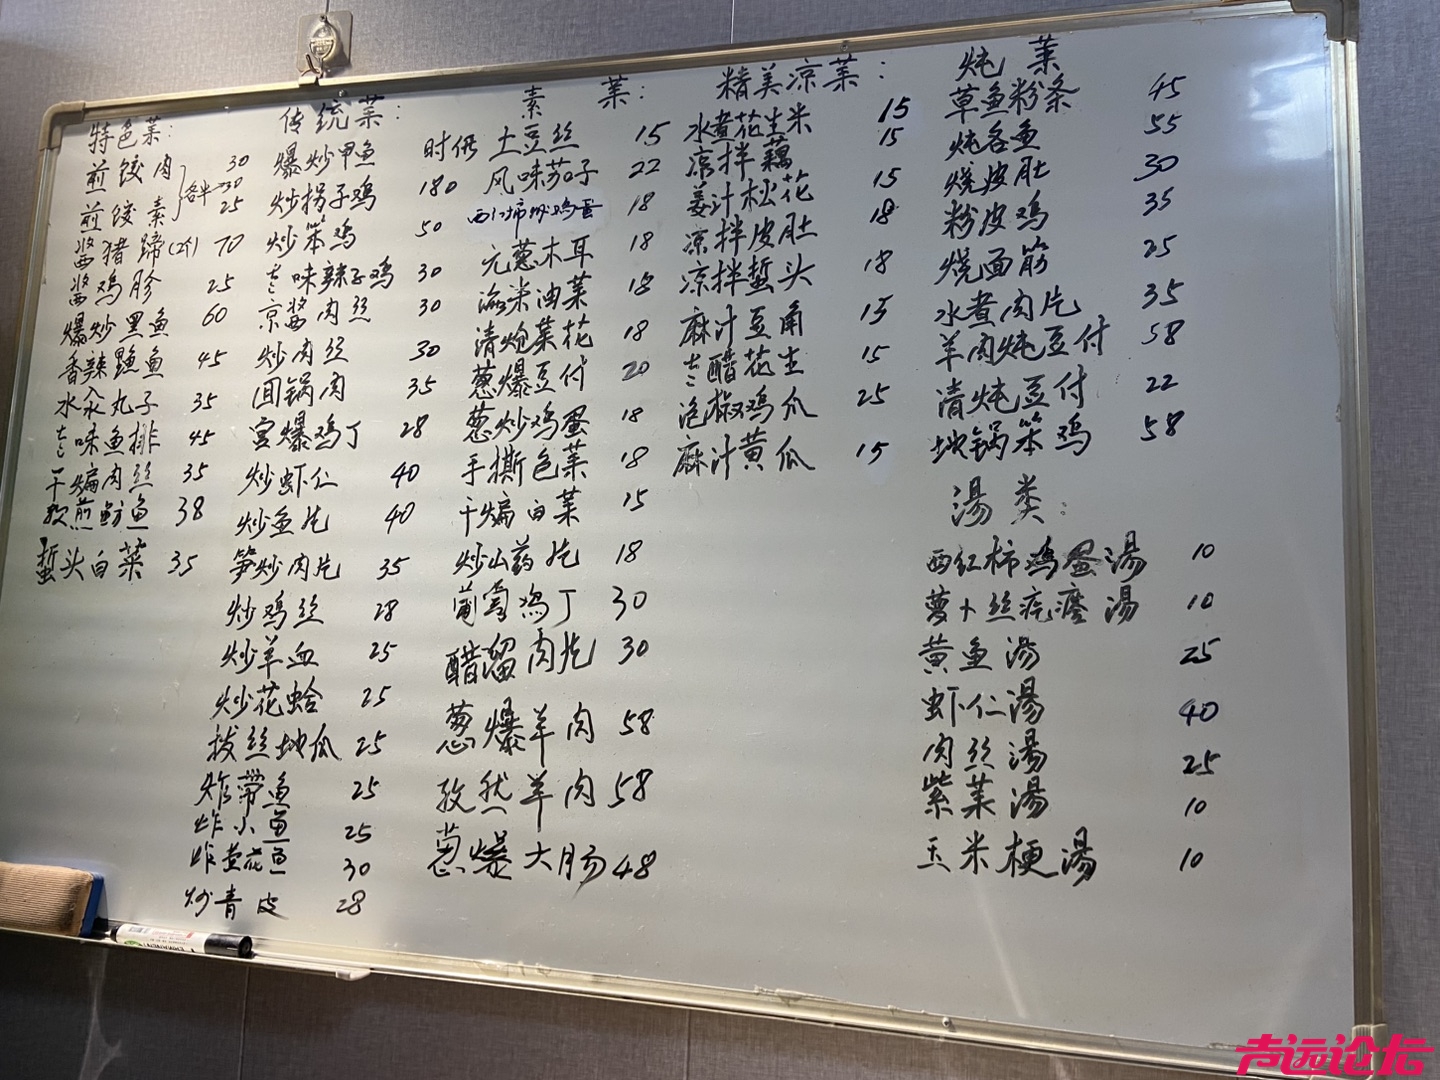 特色菜:
煎饺肉 30
各半 30
煎饺素 25
酱猪蹄(2个) 70
酱鸡胗 25
爆炒黑鱼 60
香辣鱼 45
水汆丸子 35
味鱼排 45
干煸肉丝 35
软煎鲂鱼 38
蜇头白菜 35
传统菜:
爆炒甲鱼 时价
炒拐子鸡 180
炒笨鸡 50
味辣子鸡 30
京酱肉丝 30
炒肉丝 30
回锅肉 35
宫爆鸡丁 28
炒虾仁 40
炒鱼片 40
笋炒肉片 35
炒鸡丝 28
炒羊血 25
炒花蛤 25
拔丝地瓜 25
炸带鱼 25
炸小鱼 25
炸黄花鱼 30
炒青皮 28
素菜:
土豆丝 15
风味茄子 22
西红柿炒鸡蛋 18
元葱木耳 18
海米油菜 18
清炝菜花 18
葱爆豆付 20
葱炒鸡蛋 18
手撕包菜 18
干煸白菜 15
炒山药片 18
鸡丁 30
醋溜肉片 30
葱爆羊肉 58
孜然羊肉 58
葱爆大肠 48
精美凉菜:
水煮花生米 15
凉拌藕 15
姜汁松花 15
凉拌皮肚 18
凉拌蜇头 18
麻汁豆角 15
醋花生 15
泡椒鸡爪 25
麻汁黄瓜 15
炖菜
草鱼粉条 45
炖各鱼 55
烧皮肚 30
粉皮鸡 35
烧面筋 25
水煮肉片 35
羊肉炖豆付 58
清炖豆付 22
地锅笨鸡 58
汤类:
西红柿鸡蛋汤 10
萝卜丝疙瘩汤 10
黄鱼汤 25
虾仁汤 40
肉丝汤 25
紫菜汤 10
玉米梗汤 10
志远论坛